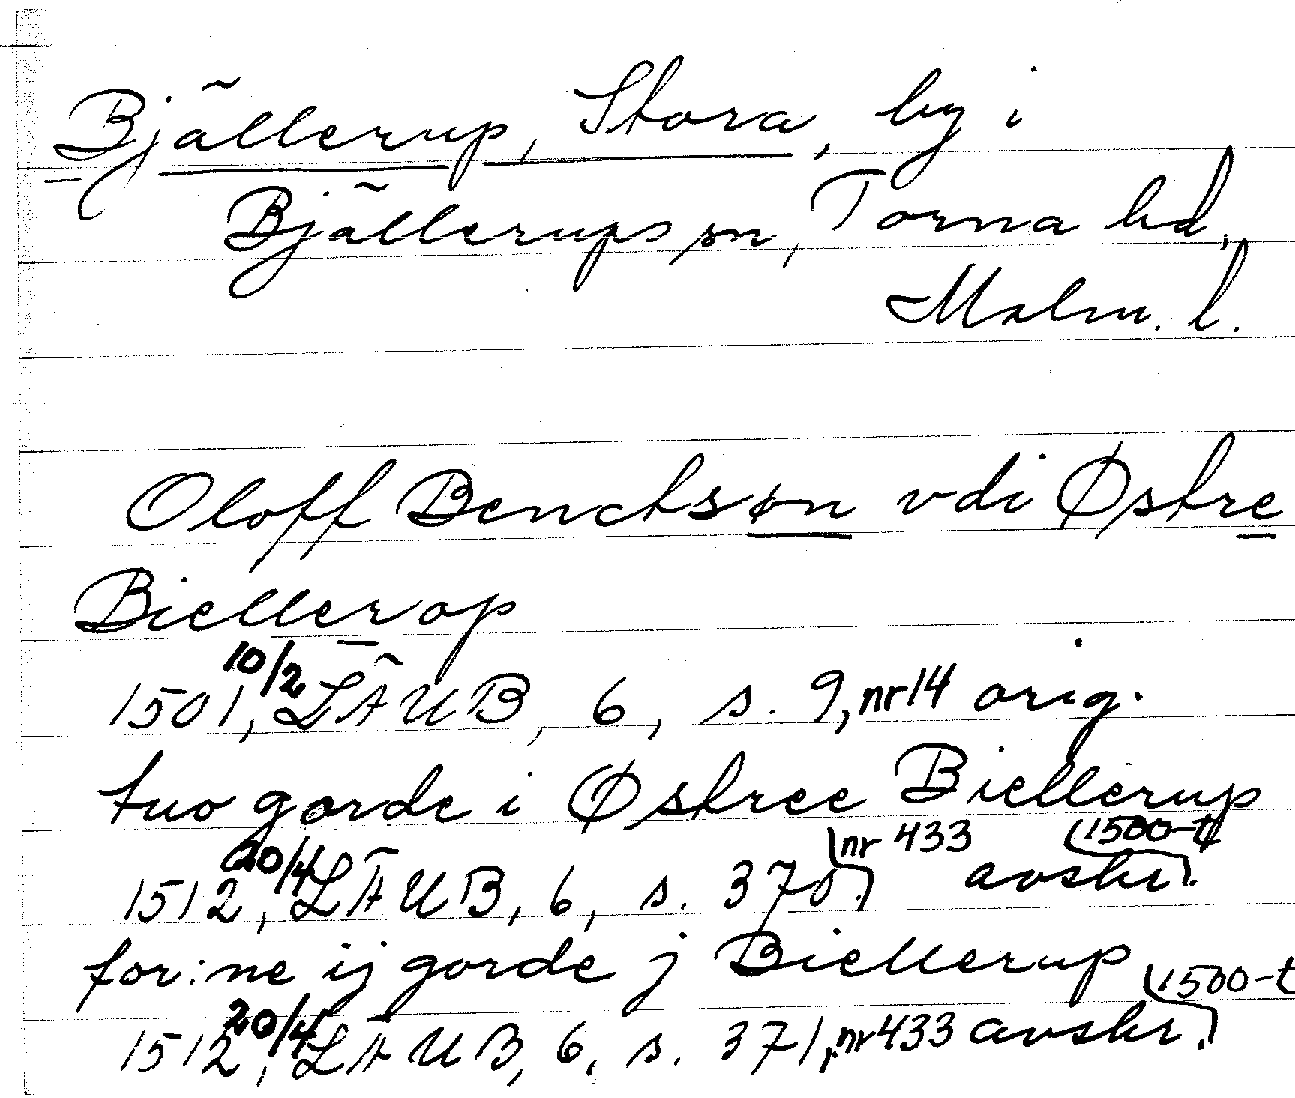 Bjällerup, Stora, by i
Bjällerups sn, Torna hd,
Malm. l.
Oloff Benctsøn vdi Østre
Biellerop
1501 10/2, LÄUB, 6, s. 9, nr 14 orig.
tuo gorde i Østree Biellerup
1512 20/4, LÄUB, 6, s. 370, nr 433 avskr. 1500-t
for:ne ij gorde j Biellerup
1512 20/4, LÄUB, 6, s. 371, nr 433 avskr. 1500-t